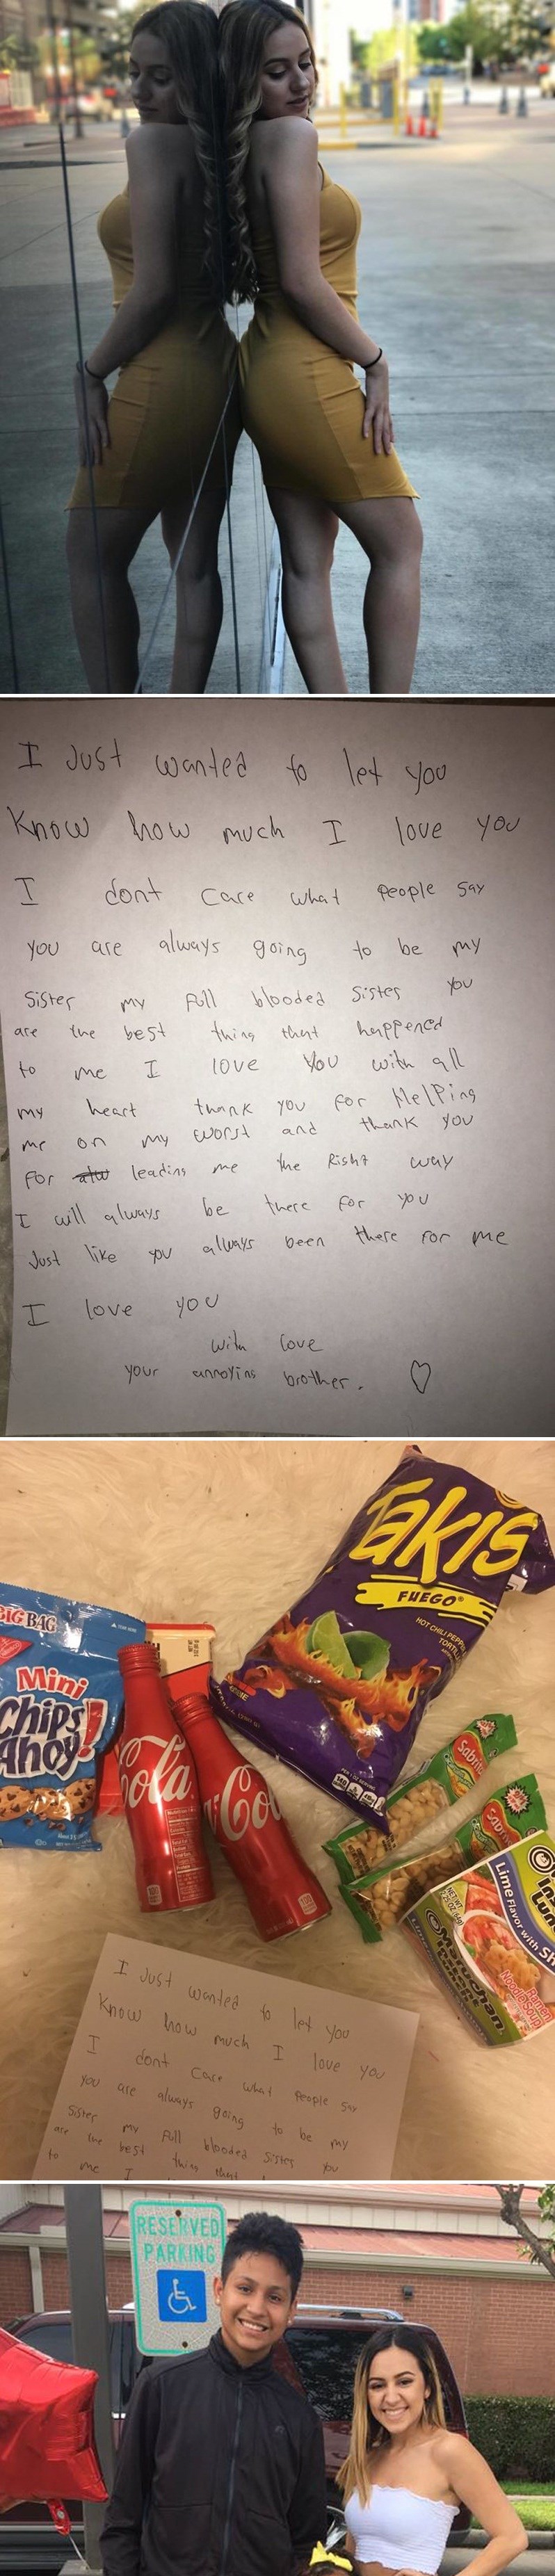 I Just wanted to let you
Know how much I love you
I dont care what people say
you are always going to be my
Sister my full blooded sister you
are the best thing that happened
to me I love you with all
my heart thank you for Helping
me on my worst and thank you
for leading me the Right way
I will always be there for you
Just like you always been there for me
I love you
with love
your annoying brother.
Takis
FUEGO®
HOT CHILI PEPPER
BIG BAG
Mini
Chips
Ahoy!
Cola
Coca
Sabritas
Lime Flavor with Shrimp
Maruchan
Instant Lunch
Ramen
Noodle Soup
I Just wanted to let you
Know how much I love you
I dont care what people say
you are always going to be my
Sister my full blooded sister you
are the best thing that
to me I
RESERVED
PARKING